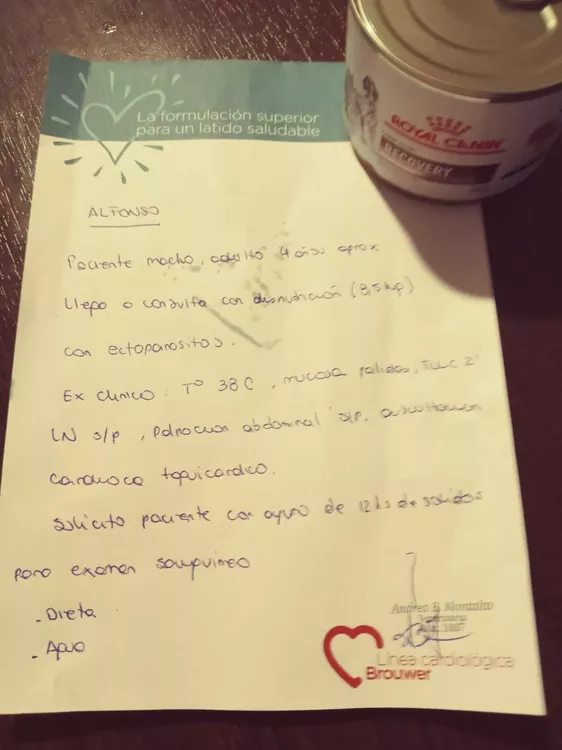 La formulación superior
para un latido saludable
ROYAL CANIN
RECOVERY
ALFONSO
Paciente macho, adulto 4 años aprox
llego a consulta con desnutrición (8,5 kg)
con ectoparasitos.
Ex clinico: T° 38 C, mucosa palidas, TLLC 2"
LN s/p, Palpacion abdominal s/p, auscultacion
cardiaca taquicardico.
Solicito paciente con ayuno de 12 hs de solidos
para examen sanguineo
- Dieta
- Agua
Andres E. Montalto
Línea cardiológica
Brouwer